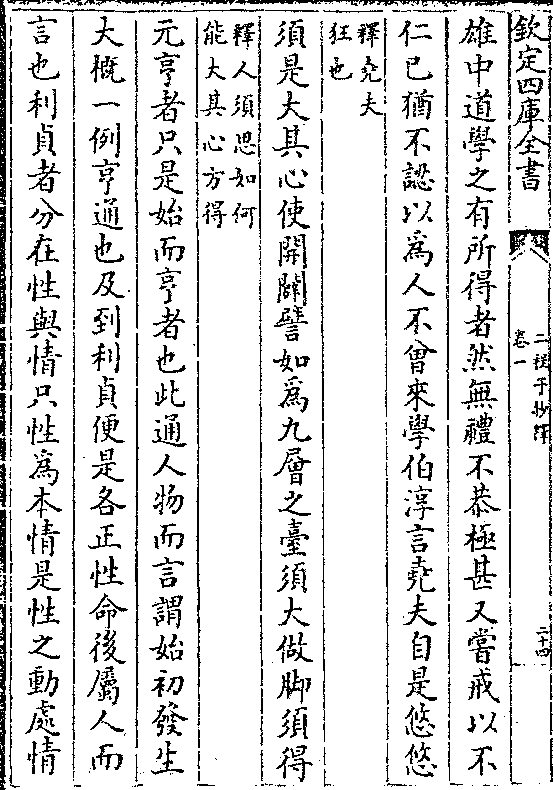 欽定四庫全書
卷一
二程子抄釋
二十四
雄中道學之有所得者然無禮不恭極甚又嘗戒以不
仁已猶不認以為人不曾來學伯淳言堯夫自是悠悠
釋堯夫
狂也
須是大其心使開闊譬如為九層之臺須大做脚須得
釋人須思如何
能大其心方得
元亨者只是始而亨者也此通人物而言謂始初發生
大概一例亨通也及到利貞便是各正性命後屬人而
言也利貞者分在性與情只性為本情是性之動處情